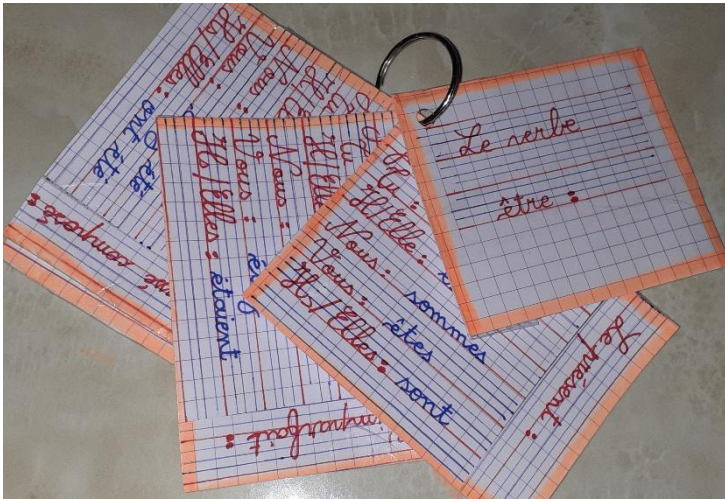 Le verbe
être :
Le présent :
Tu :
Il/Elle :
Nous : sommes
Vous : êtes
Ils/Elles : sont
imparfait :
Tu
Il/Elle
Nous :
Vous :
Ils/Elles : étaient
composé :
Tu
Il/Ell
Nous :
Vous : été
Ils/Elles : ont été